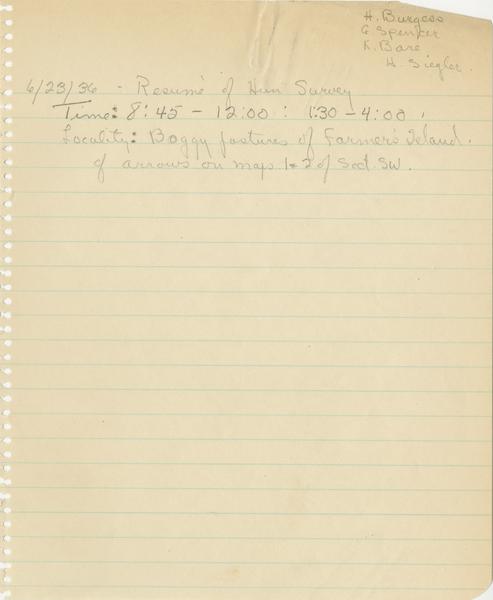 H. Burgess
G Spencer
K. Bare
H. Siegler.
6/23/36 - Resumé of Hun Survey
Time: 8:45 - 12:00 : 1:30 - 4:00
Locality: Boggy pastures of Farmer's Island.
of arrows on map 1 & 2 of Sect. SW.